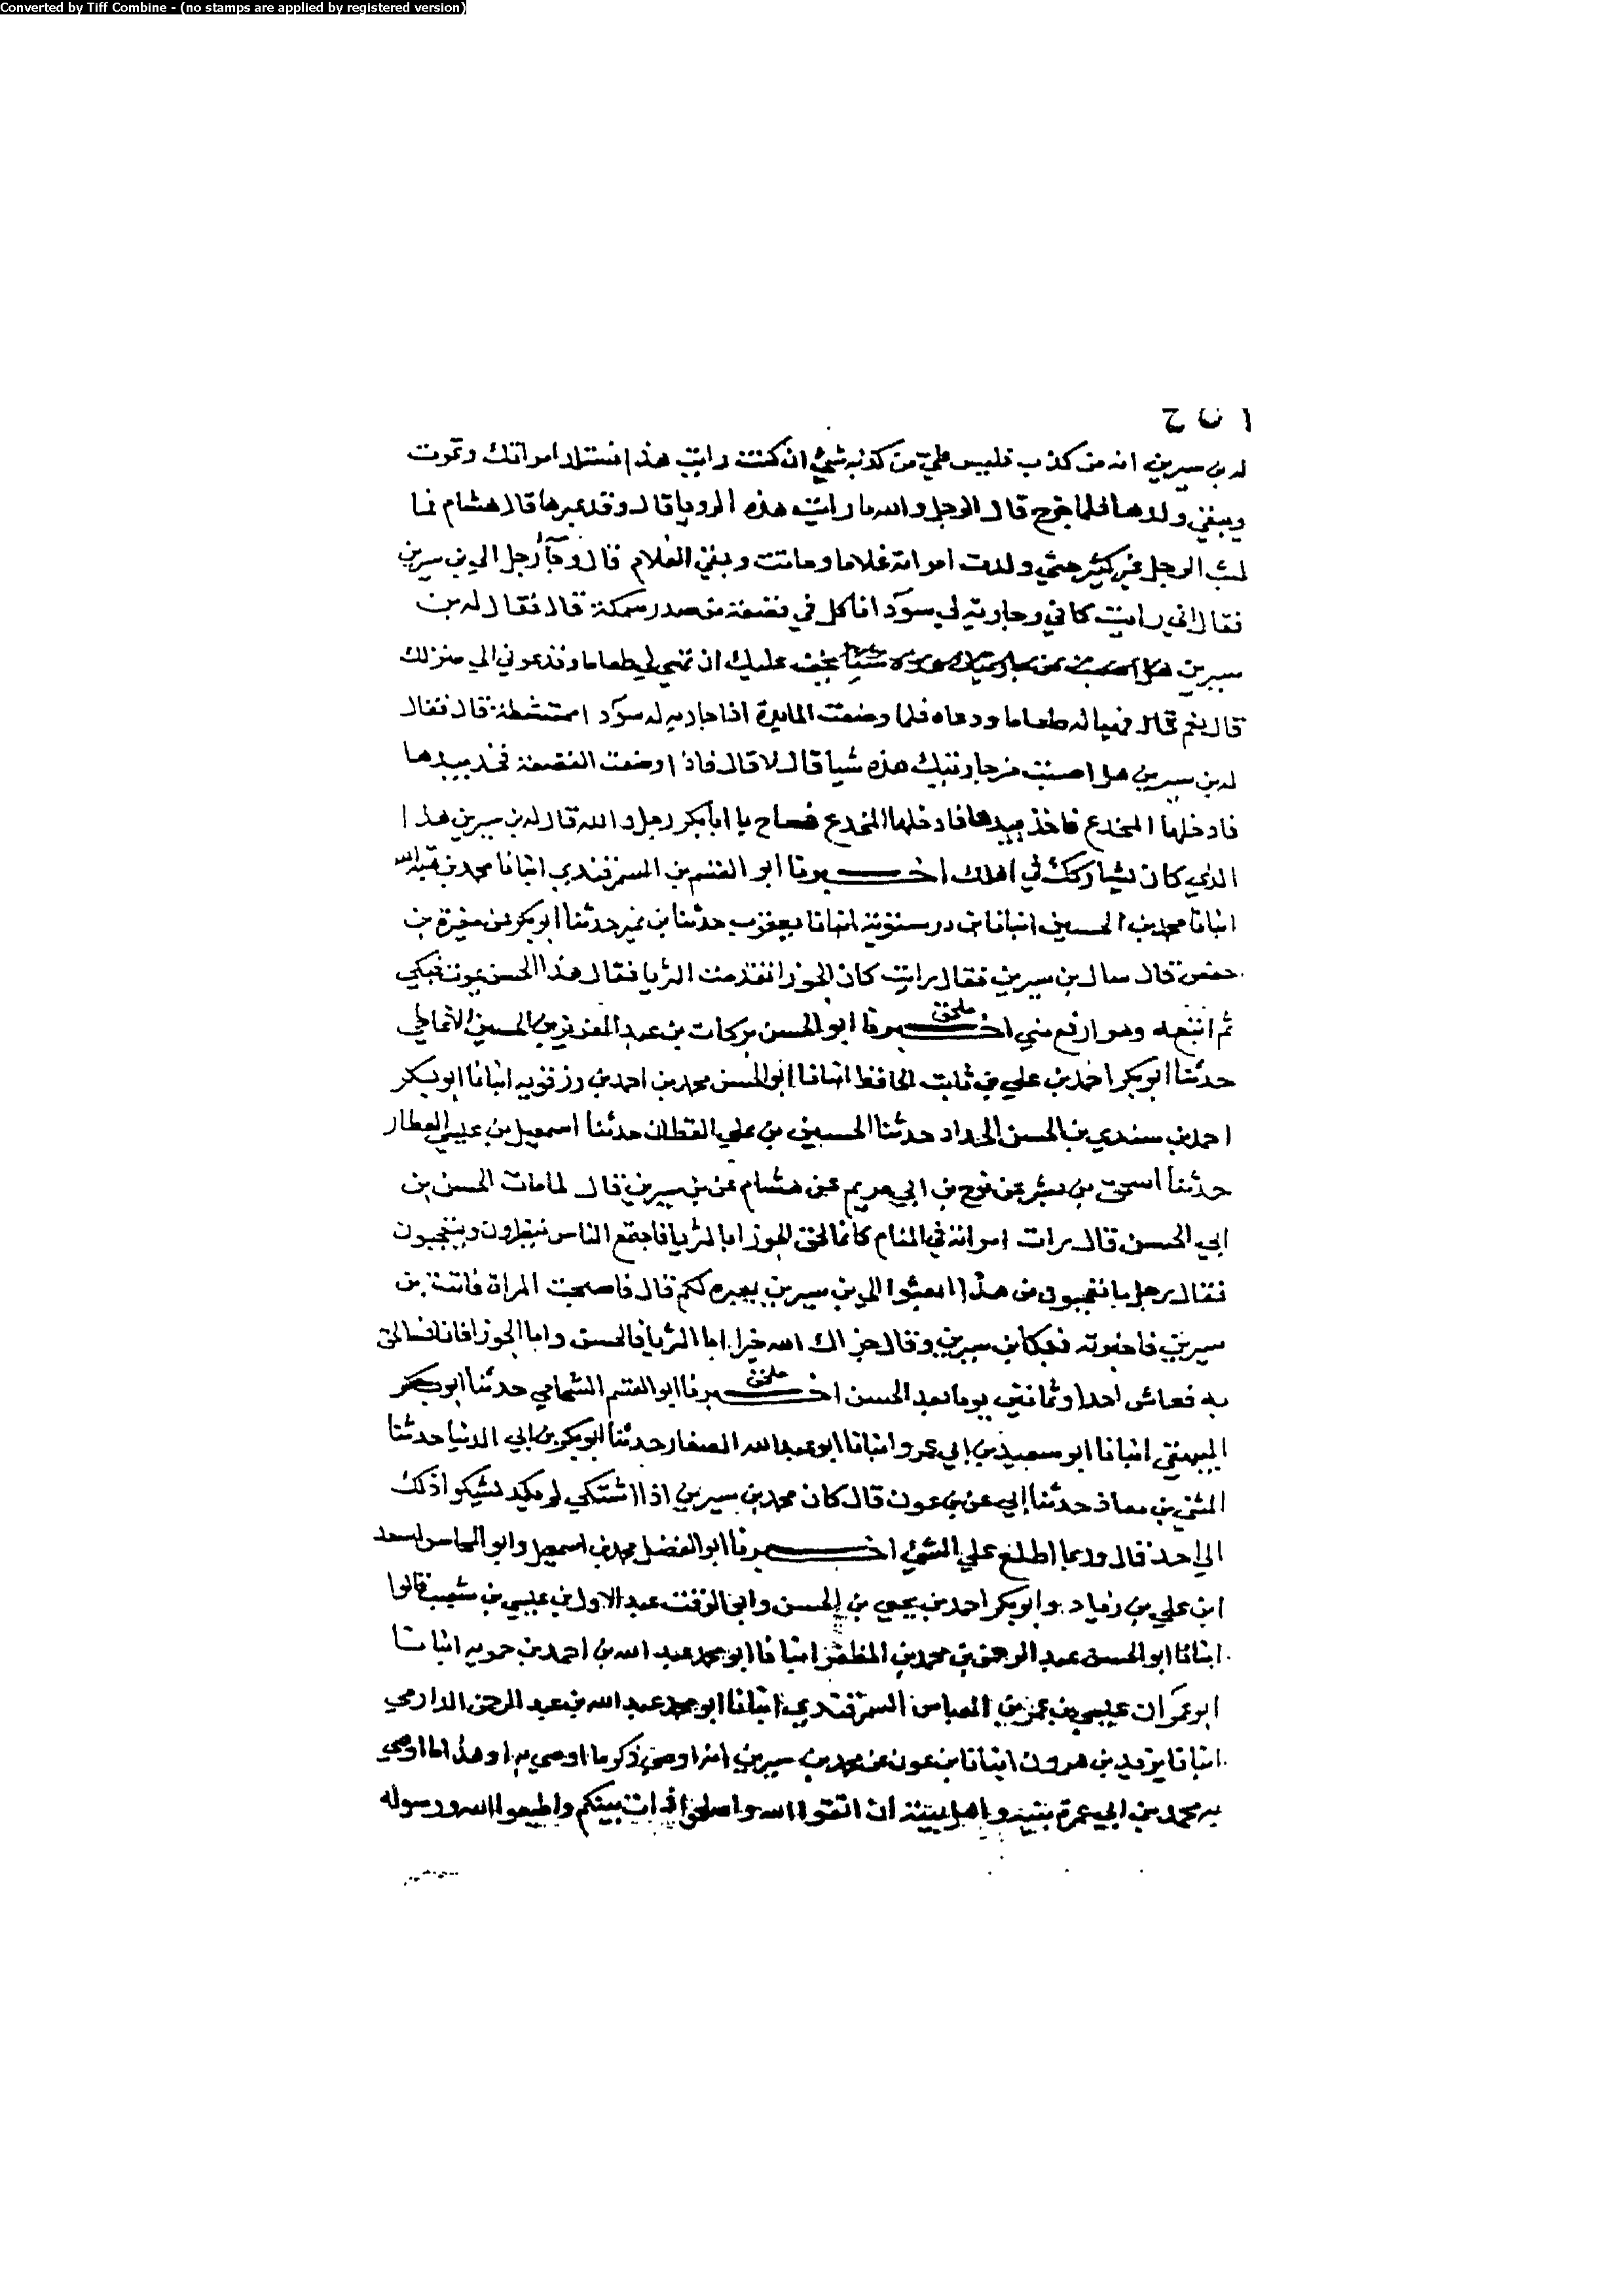 Converted by Tiff Combine - (no stamps are applied by registered version)
له بن سيرين انه من كذب فليس علي من كذبه شي ان كنت رايت هذا فستلد امراتك وتموت
ويبقى ولدها فلما خرج قال الرجل والله ما رايت هذه الرويا قال وقد عبرها قال هشام فما
لبث الرجل غير كثير حتى ولدت امراته غلاما وماتت وبقي الغلام قال وجآ رجل الى بن سيرين
فقال اني رايت كاني وجارية لي سودآ ناكل في قصعة من صدر سمكة قال فقال له بن
سيرين يخف عليك ان تهي لي طعاما وتدعوني الى منزلك
قال نعم قال فهيا له طعاما ودعاه فلما وضعت المايدة اذا جارية له سودآ ممتشطة قال فقال
له بن سيرين هل اصبت من جاريتك هذه شيا قال لا قال فاذا وضعت القصعة فخذ بيدها
فادخلها المخدع فاخذ بيدها فادخلها المخدع فصاح يا ابا بكر رجل والله قال له بن سيرين هذا
الذي كان يشاركك في اهلك اخبرنا ابو القسم بن السمرقندي انبانا محمد بن هبة الله
انبانا محمد بن الحسين انبانا بن درستويه انبانا يعقوب حدثنا بن نمير حدثنا ابو بكر عن مغيرة بن
حفص قال سال بن سيرين فقال رايت كان الجوزا تقدمت الثريا فقال هذا الحسن يموت قبلي
ثم اتبعه وهو ارفع مني اخبرنا ابو الحسن بركات بن عبد العزيز بن الحسين الانماطي
ملحق
حدثنا ابو بكر احمد بن علي بن ثابت الحافظ انبانا ابو الحسن محمد بن احمد بن رزقويه انبانا ابو بكر
احمد بن سندي بن الحسن الحداد حدثنا الحسين بن علي القطان حدثنا اسمعيل بن عيسى العطار
حدثنا اسحق بن بشر عن نوح بن ابي مريم عن هشام عن بن سيرين قال لما مات الحسن بن
ابي الحسن قال رات امراة في المنام كانما لحق الجوزا بالثريا فاجتمع الناس ينظرون ويتعجبون
فقال رجل ما تعجبون من هذا ابعثوا الى بن سيرين يعبره لكم قال فاصبحت المراة فاتت بن
سيرين فاخبرته فبكا بن سيرين وقال جزاك الله خيرا اما الثريا فالحسن واما الجوزا فانا لاحق
به فعاش احدا وثمانين يوما بعد الحسن اخبرنا ابو القسم الشحامي حدثنا ابو بكر
ملحق
البيهقي انبانا ابو سعيد بن ابي عمرو انبانا ابو عبد الله الصفار حدثنا ابو بكر بن ابي الدنيا حدثنا
المثنى بن معاذ حدثنا ابي عن بن عون قال كان محمد بن سيرين اذا اشتكى لم يكد يشكو ذلك
الى احد قال وربما اطلع على الشي اخبرنا ابو الفضل محمد بن اسمعيل وابو المحاسن اسعد
ابن علي بن زياد وابو بكر احمد بن يحيى بن الحسن وابو الوقت عبد الاول بن عيسى بن شعيب قالوا
انبانا ابو الحسن عبد الرحمن بن محمد بن المظفر انبانا ابو محمد عبد الله بن احمد بن حمويه انبانا
ابو عمران عيسى بن عمر بن العباس السمرقندي انبانا ابو محمد عبد الله بن عبد الرحمن الدارمي
انبانا يزيد بن هرون انبانا بن عون عن محمد بن سيرين انه اوصى ذكر ما اوصى به او هذا ما اوصى
به محمد بن ابي عمرة بنيه واهل بيته ان اتقوا الله واصلحوا ذات بينكم واطيعوا الله ورسوله